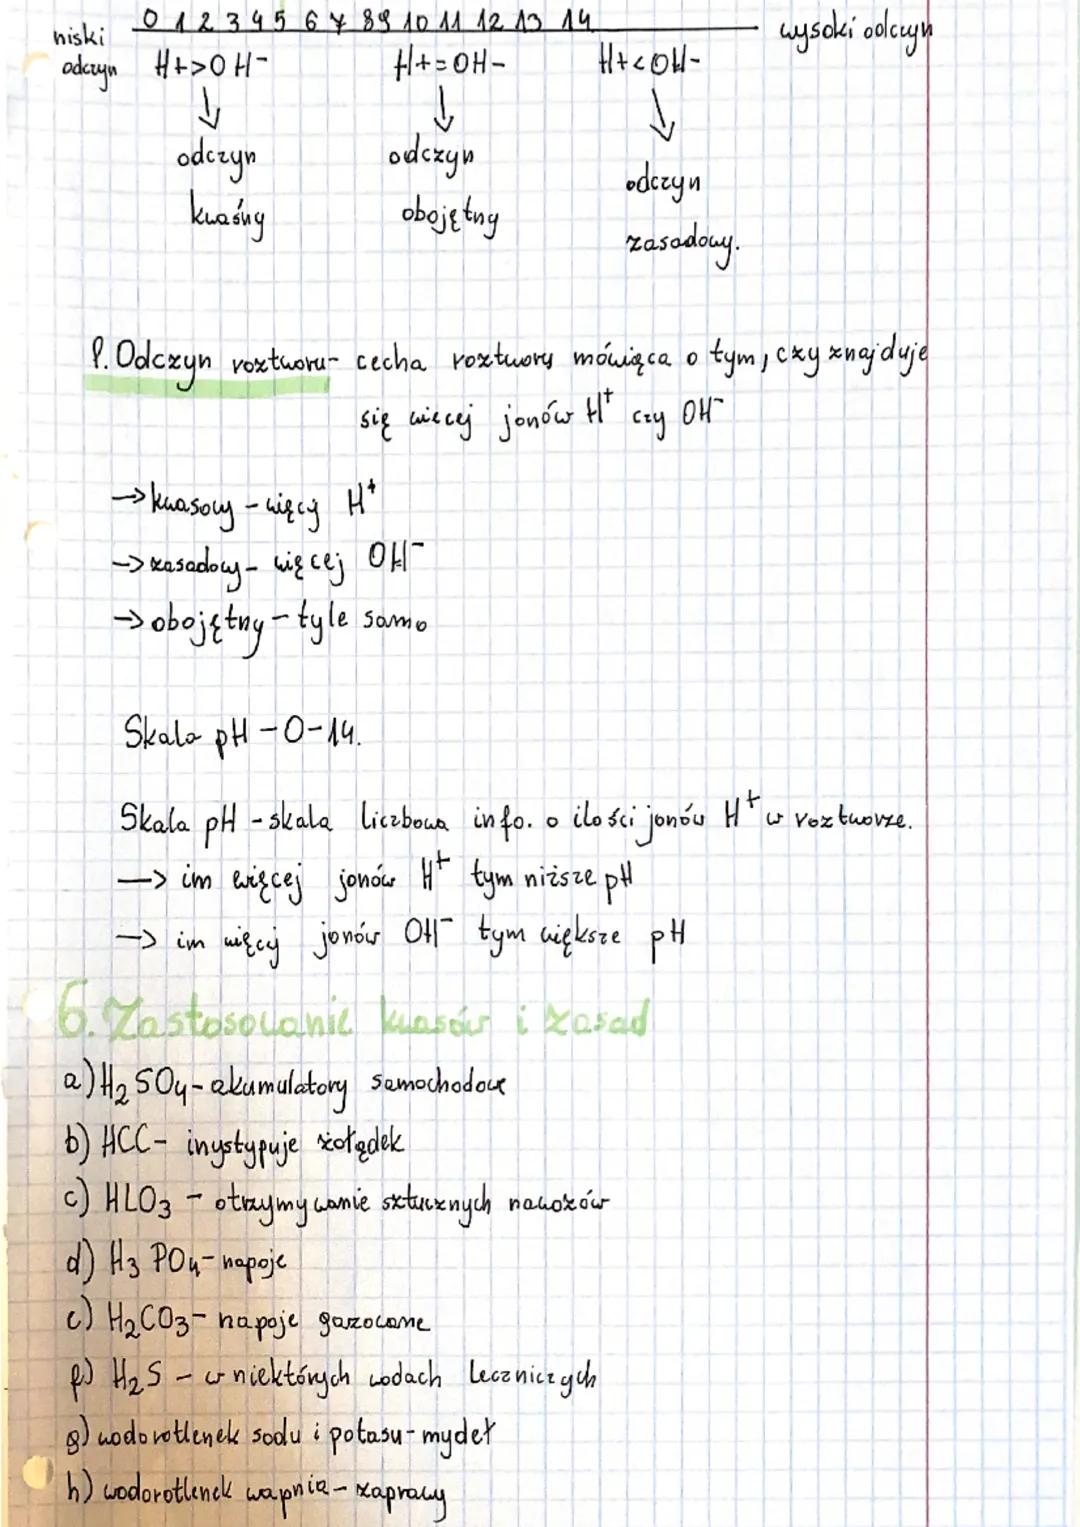 0 1 2 3 4 5 6 7 8 9 10 11 12 13 14
niski odczyn
wysoki odczyn
H+>OH- H+=OH- H+<OH-
↓ ↓ ↓
odczyn odczyn odczyn
kwaśny obojętny zasadowy.
P. Odczyn roztworu- cecha roztworu mówiąca o tym, czy znajduje
się więcej jonów H⁺ czy OH⁻
→ kwasowy - więcej H⁺
→ zasadowy - więcej OH⁻
→ obojętny - tyle samo
Skala pH - 0-14.
Skala pH - skala liczbowa info. o ilości jonów H⁺ w roztworze.
→ im więcej jonów H⁺ tym niższe pH
→ im więcej jonów OH⁻ tym większe pH
6. Zastosowanie kwasów i zasad
a) H₂SO₄ - akumulatory samochodowe
b) HCC - inystypuje żołądek
c) HLO₃ - otrzymywanie sztucznych nawozów
d) H₃PO₄ - napoje
e) H₂CO₃ - napoje gazowane
f) H₂S - w niektórych wodach leczniczych
g) wodorotlenek sodu i potasu - mydeł
h) wodorotlenek wapnia - zaprawy